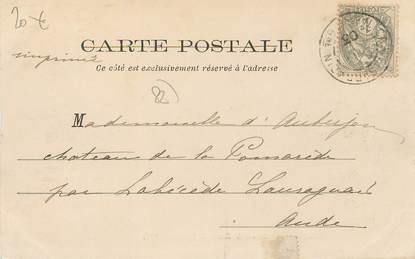 20 €
CARTE POSTALE
imprimés
Ce côté est exclusivement réservé à l'adresse
82
Mademoiselle d'Auberjon
chateau de la Pomarède
par Labécède Lauragais
Aude